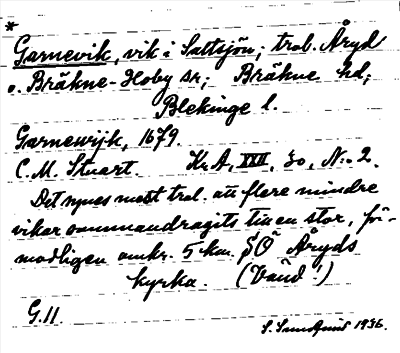 *
Garnevik, vik i Saltsjön; trol. Åryd
o. Bräkne-Hoby sr; Bräkne hd;
Blekinge l.
Garnewijk, 1679.
C. M. Stuart. Kr A, XXII, 30, N:o 2.
Det synes mest trol. att flere mindre
vikar sammandragits till en stor, för-
modligen omkr. 5 km. SO Åryds
kyrka. (Vänd!)
G. 11.
1936.